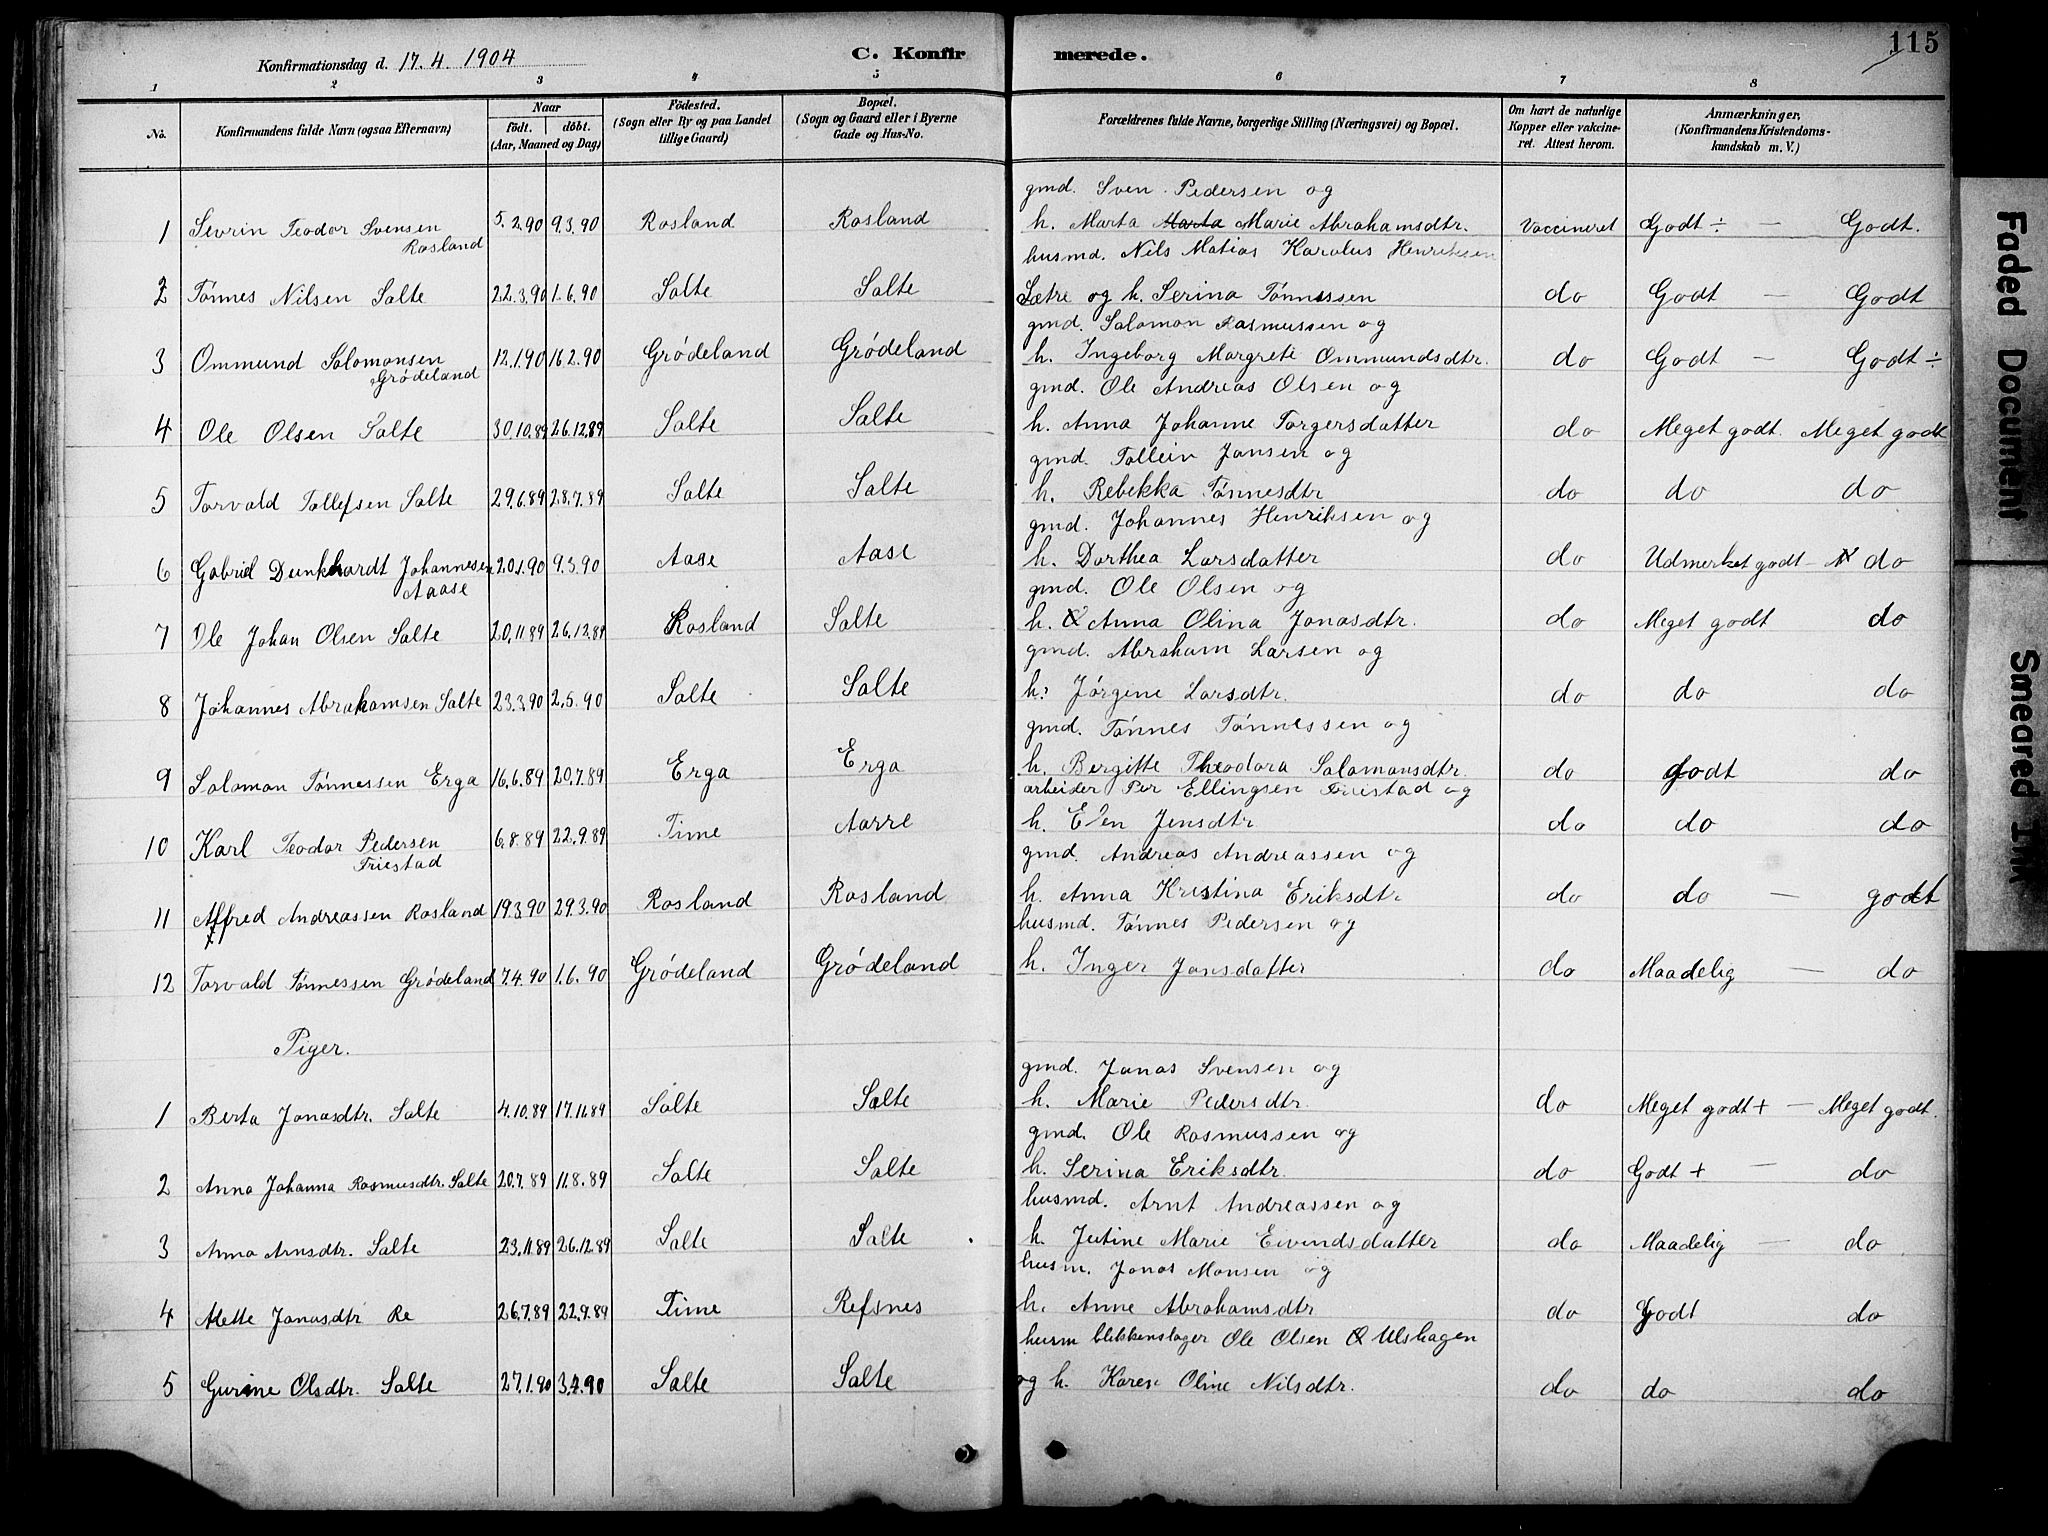 115
Konfirmationsdag d. 17. 4. 1904
C. Konfir merede.
1 2 3 4 5 6 7 8
No. Konfirmandens fulde Navn (ogsaa Efternavn) Naar født. døbt. (Aar, Maaned og Dag) Fødested. (Sogn eller By og paa Landet tillige Gaard) Bopæl. (Sogn og Gaard eller i Byerne Gade og Hus-No. Forældrenes fulde Navne, borgerlige Stilling (Næringsvei) og Bopæl. Om havt de naturlige Kopper eller vakcineret. Attest herom. Anmærkninger. (Konfirmandens Kristendomskundskab m. V.)
gmd. Sven Pedersen og
1 Sevrin Teodor Svensen Rosland 5. 2.90 9.3.90 Rosland Rosland h. Marta Marta Marie Abrahamsdtr. Vaccineret Godt ÷ — Godt.
husmd. Nils Matias Karolus Henriksen
2 Tønnes Nilsen Salte 22.3.90 1.6.90 Salte Salte Sætre og h. Serina Tønnessen do Godt — Godt
gmd. Salomon Rasmussen og
3 Ommund Salomonsen Grødeland 12.1.90 16.2.90 Grødeland Grødeland h. Ingeborg Margrete Ommundsdtr. do Godt — Godt ÷
gmd. Ole Andreas Olsen og
4 Ole Olsen Salte 30.10.89 26.12.89 Salte Salte h. Anna Johanne Torgersdatter do Meget godt. Meget godt
gmd. Tollein Jansen og
5 Torvald Tollefsen Salte 29.6.89 28.7.89 Salte Salte h. Rebekka Tønnesdtr do do do
gmd. Johannes Henriksen og
6 Gabriel Dunkhardt Johannesen Aaase 20.1.90 9.3.90 Aase Aase h. Dorthea Larsdatter do Udmerket godt - do
gmd. Ole Olsen og
7 Ole Johan Olsen Salte 20.11.89 26.12.89 Rosland Salte h. Anna Olina Jonasdtr. do Meget godt do
gmd. Abraham Larsen og
8 Johannes Abrahamsen Salte 23.3.90 2.5.90 Salte Salte h. Jørgine Larsdtr. do do do
gmd. Tønnes Tønnessen og
9 Solomon Tønnessen Erga 16.6.89 20.7.89 Erga Erga h. Bergitte Theodora Salomonsdtr. do godt do
arbeider Per Ellingsen Friestad og
10 Karl Teodor Pedersen Friestad 6.8.89 22.9.89 Time Aarre h. Elen Jensdtr do do do
gmd. Andreas Andreassen og
11 Alfred Andreassen Rosland 19.3.90 29.3.90 Rosland Rosland h. Anna Kristina Eriksdtr. do do — godt
husmd. Tønnes Pedersen og
12 Torvald Tønnessen Grødeland 7.4.90 1.6.90 Grødeland Grødeland h. Inger Jonsdatter do Maadelig — do
Piger.
gmd. Jonas Svensen og
1 Berta Jonasdtr. Salte 4.10.89 17.11.89 Salte Salte h. Marie Pedersdtr. do Meget godt + — Meget godt.
gmd. Ole Rasmussen og
2 Anna Johanna Rasmusdtr. Salte 20.7.89 11.8.89 Salte Salte h. Serina Eriksdtr. do Godt + — do
husmd. Arnt Andreassen og
3 Anna Arnsdtr. Salte 23.11.89 26.12.89 Salte Salte h. Jutine Marie Eivindsdatter do Maadelig — do
husm. Jonas Monsen og
4 Mette Jonasdtr Re 26.7.89 22.9.89 Time Refsnes h. Anne Abrahamsdtr do Godt do
husm blikkenslager Ole Olsen Ulshagen
5 Gurine Olsdtr. Salte 27.1.90 3.4.90 Salte Salte og h. Karen Oline Nilsdtr. do do do
Faded Document
Smeared Ink